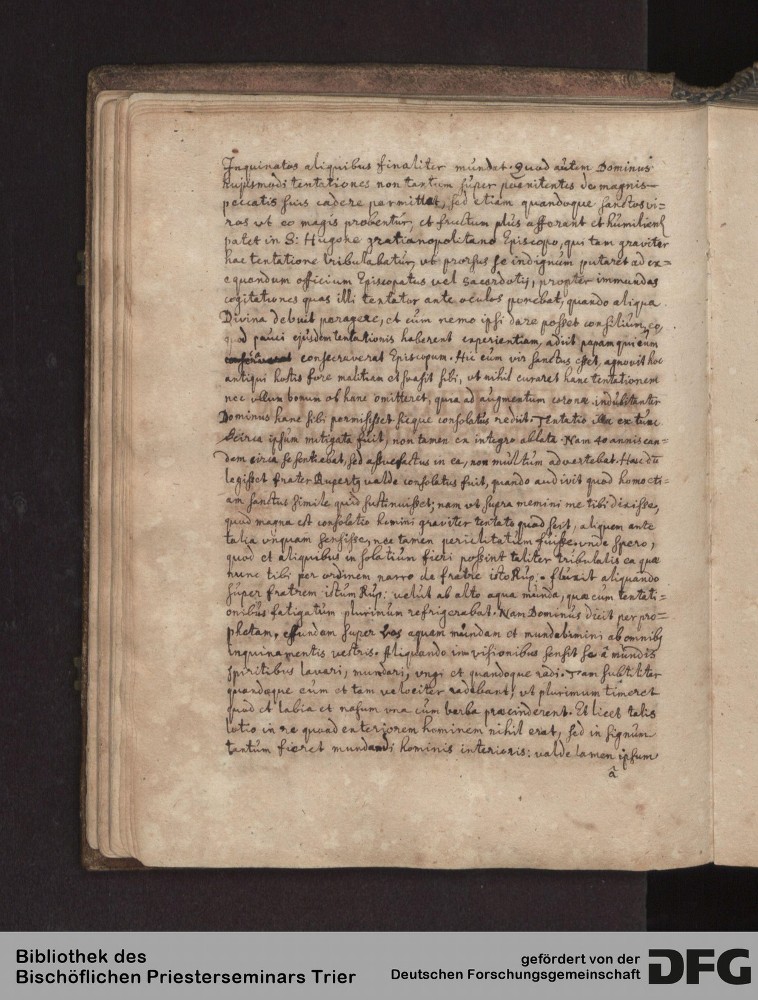 Inquinatos aliquibus finaliter mundat. Quod autem Dominus
hujusmodi tentationes non tantum super poenitentes de magnis
peccatis suis cadere permittat, sed etiam quandoque sanctos vi=
ros ut eo magis probentur, et fructum plus afferant et humilient
patet in S: Hugone gratianopolitano Episcopo, qui tam graviter
hac tentatione tribulabatur, ut prorsus se indignum putaret ad ex=
equendum officium Episcopatus vel sacerdotij, propter immundas
cogitationes quas illi tentator ante oculos ponebat, quando aliqua
Divina debuit peragere, et cum nemo ipsi dare posset consilium, eo
quod pauci ejusdem tentationis haberent experientiam, adijt papam qui eum
consecraverat Episcopum. Hic cum vir sanctus esset, agnovit hoc
antiqui hostis fore malitiam et suasit sibi, ut nihil curaret hanc tentationem
nec ullum bonum ob hanc omitteret, quia ad augmentum coronae indubitanter
Dominus hanc sibi permisisset sicque consolatus redijt. Tentatio illa ex tunc
circa ipsum mitigata fuit, non tamen ex integro ablata. Nam 40 annis ean=
dem circa se sentiebat, sed assuefactus in ea, non multum advertebat. Haec dum
legisset frater Rupertus valde consolatus fuit, quando audivit quod homo eti=
am sanctus simile quid sustinuisset; nam ut supra memini me tibi dixisse,
quod magna est consolatio homini graviter tentato quod scit, aliquem ante
talia unquam sensisse, nec tamen periclitatum fuisse. unde spero,
quod et aliquibus in solatium fieri possint taliter tribulatis ea quae
nunc tibi per ordinem narro de fratre isto Rup. fluxit aliquando
super fratrem istum Rup: velut ab alto aqua munda, quae cum tentati=
onibus fatigatum plurimum refrigerabat. Nam Dominus dicit per pro=
phetam, effundam super vos aquam mundam et mundabimini ab omnibus
inquinamentis vestris. Aliquando in visionibus sensit se à mundis
spiritibus lavari, mundari, ungi et quandoque radi. Tam subtiliter
quandoque eum et tam velociter radebant, ut plurimum timeret
quod et labia et nasum una cum barba praecinderent. Et licet talis
lotio in re quoad exteriorem hominem nihil erat, sed in signum
tantum fieret mundandi hominis interioris: valde tamen ipsum
à
Bibliothek des
Bischöflichen Priesterseminars Trier
gefördert von der
Deutschen Forschungsgemeinschaft
DFG